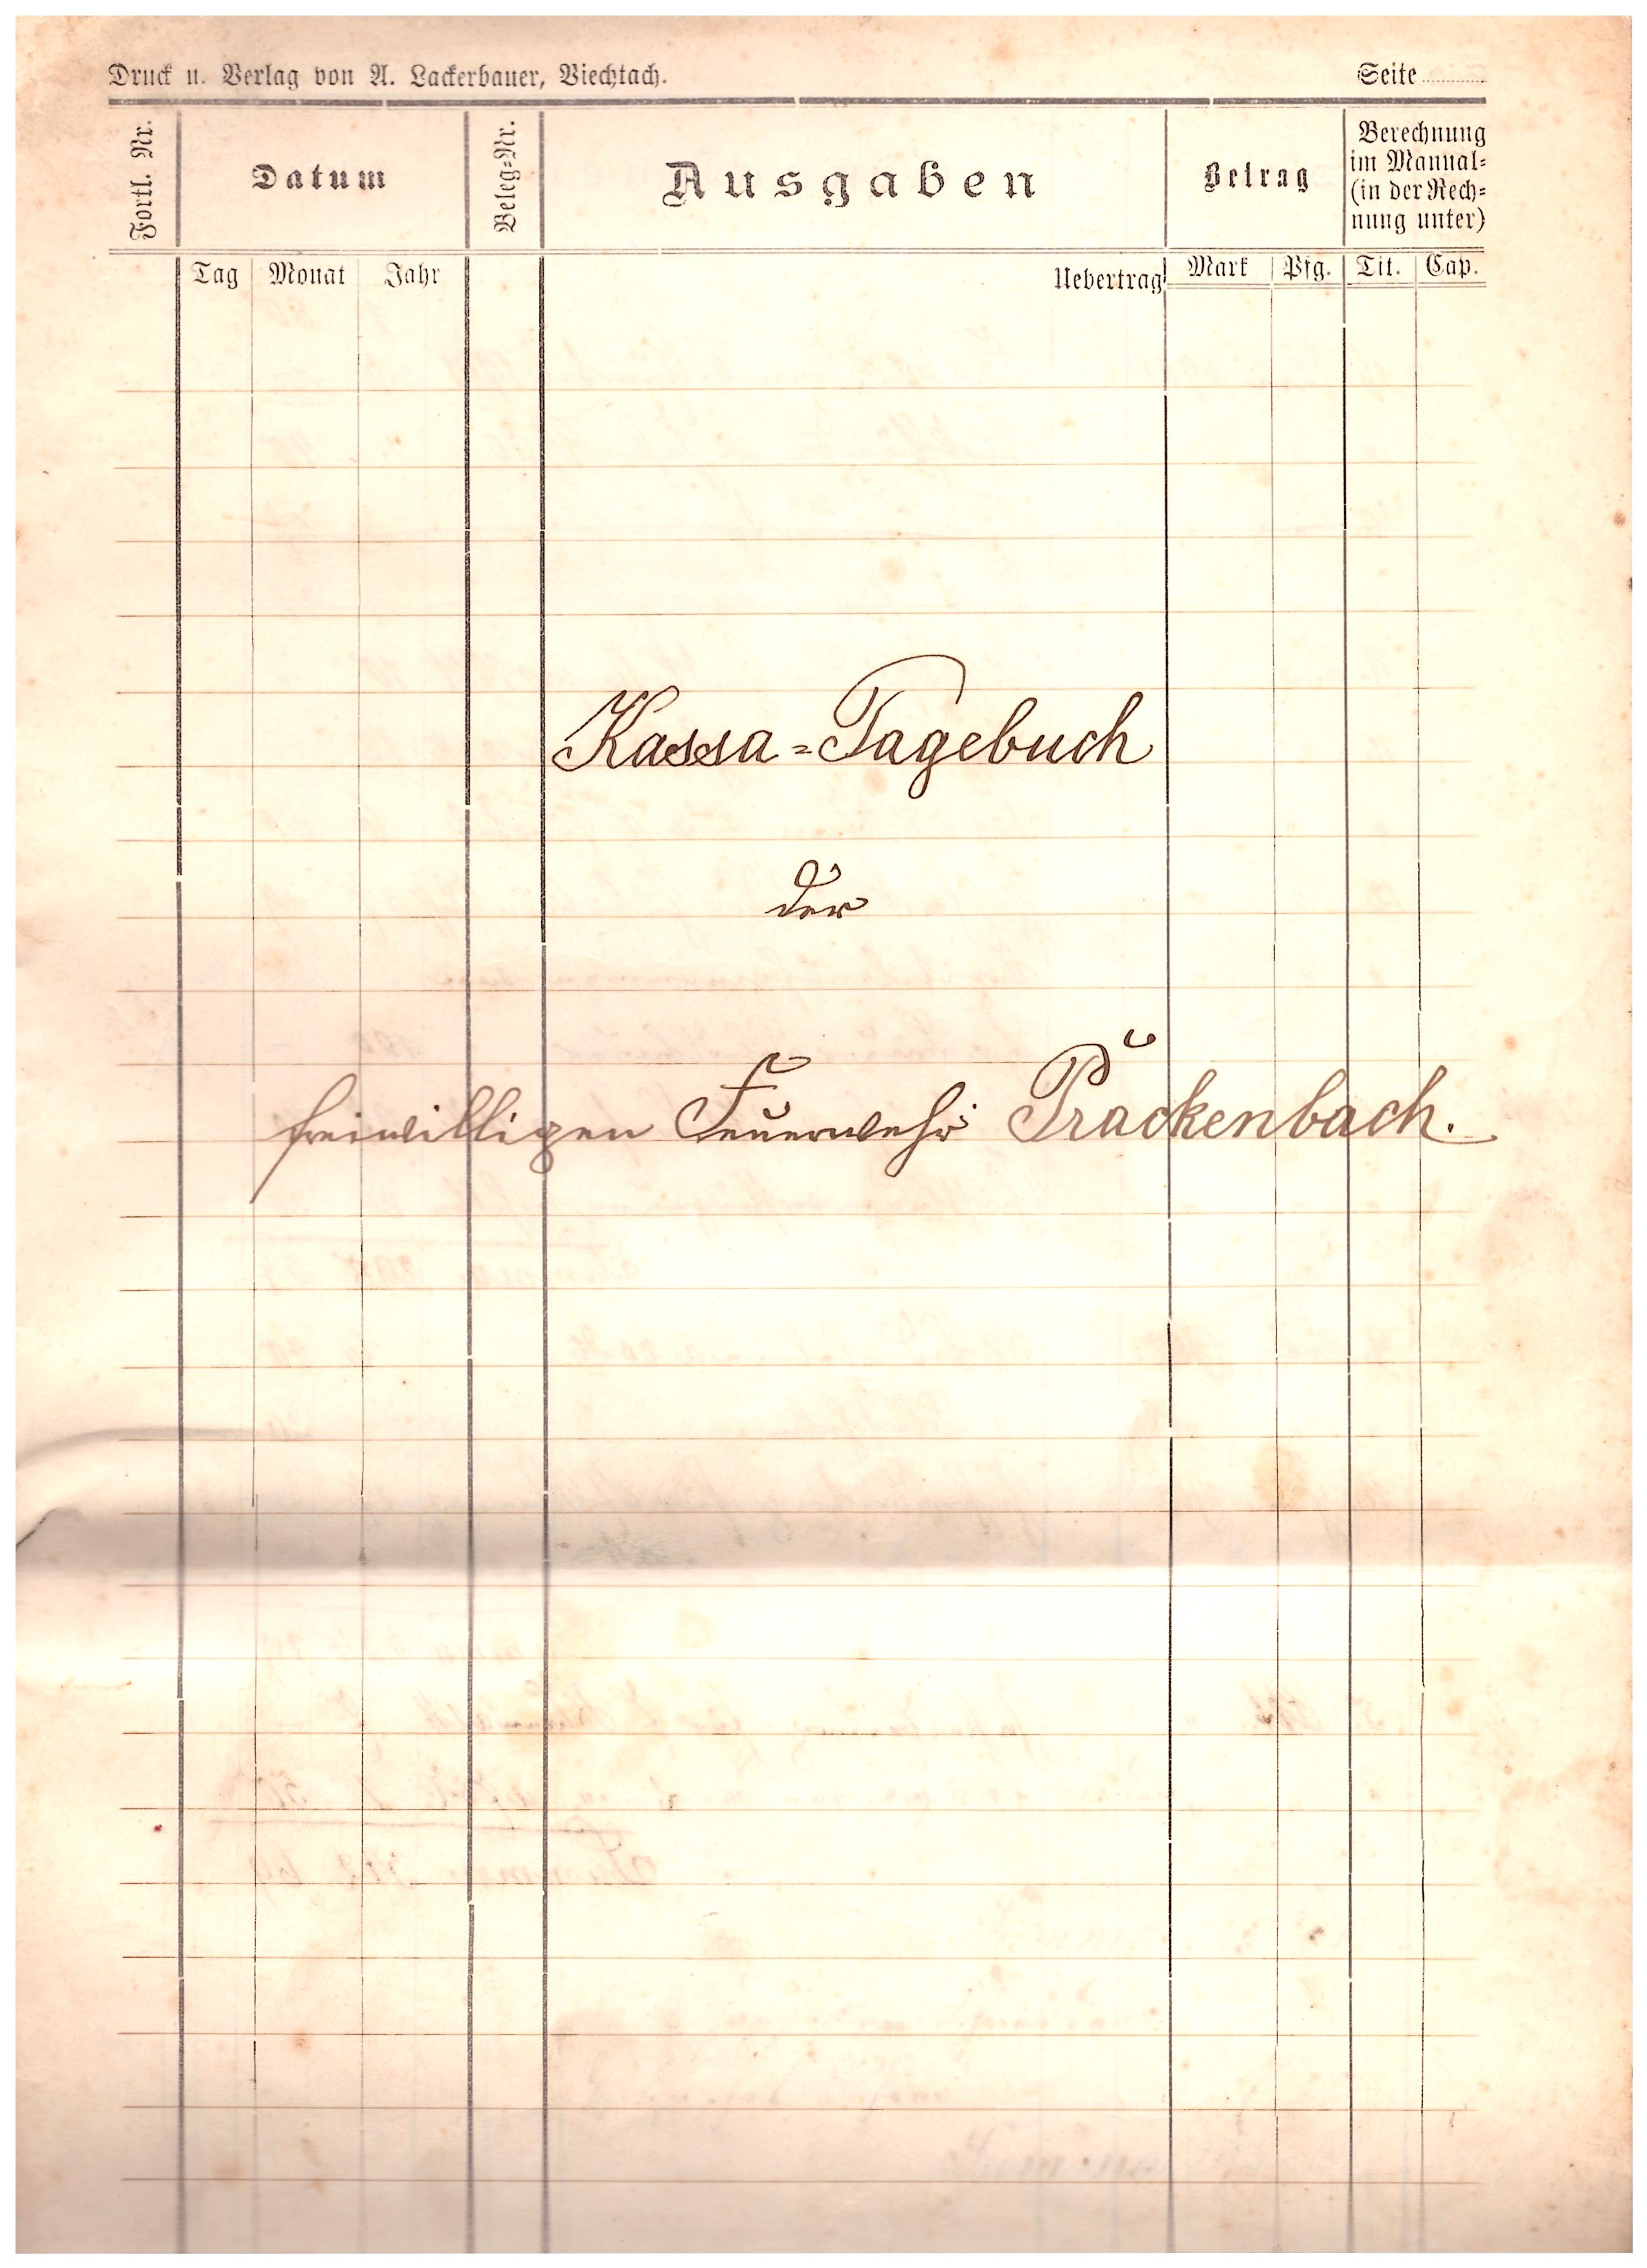 Druck u. Verlag von A. Lackerbauer, Viechtach. Seite
Fortl. Nr. Datum Beleg-Nr. Ausgaben Betrag Berechnung
im Manual-
(in der Rech-
nung unter)
Tag Monat Jahr Uebertrag Mark Pfg. Tit. Cap.
Kassa-Tagebuch
der
freiwilligen Feuerwehr Prackenbach.